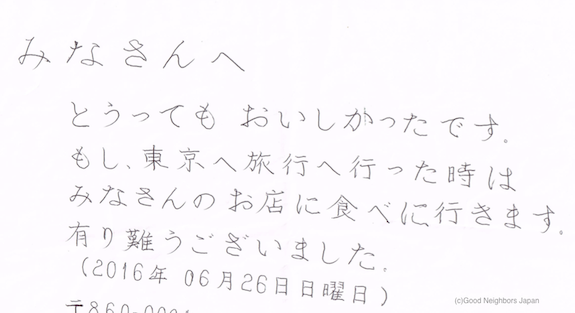 みなさんへ
とうっても おいしかったです。
もし、東京へ旅行へ行った時は
みなさんのお店に食べに行きます。
有り難うございました。
(2016年 06月26日日曜日)
(c)Good Neighbors Japan